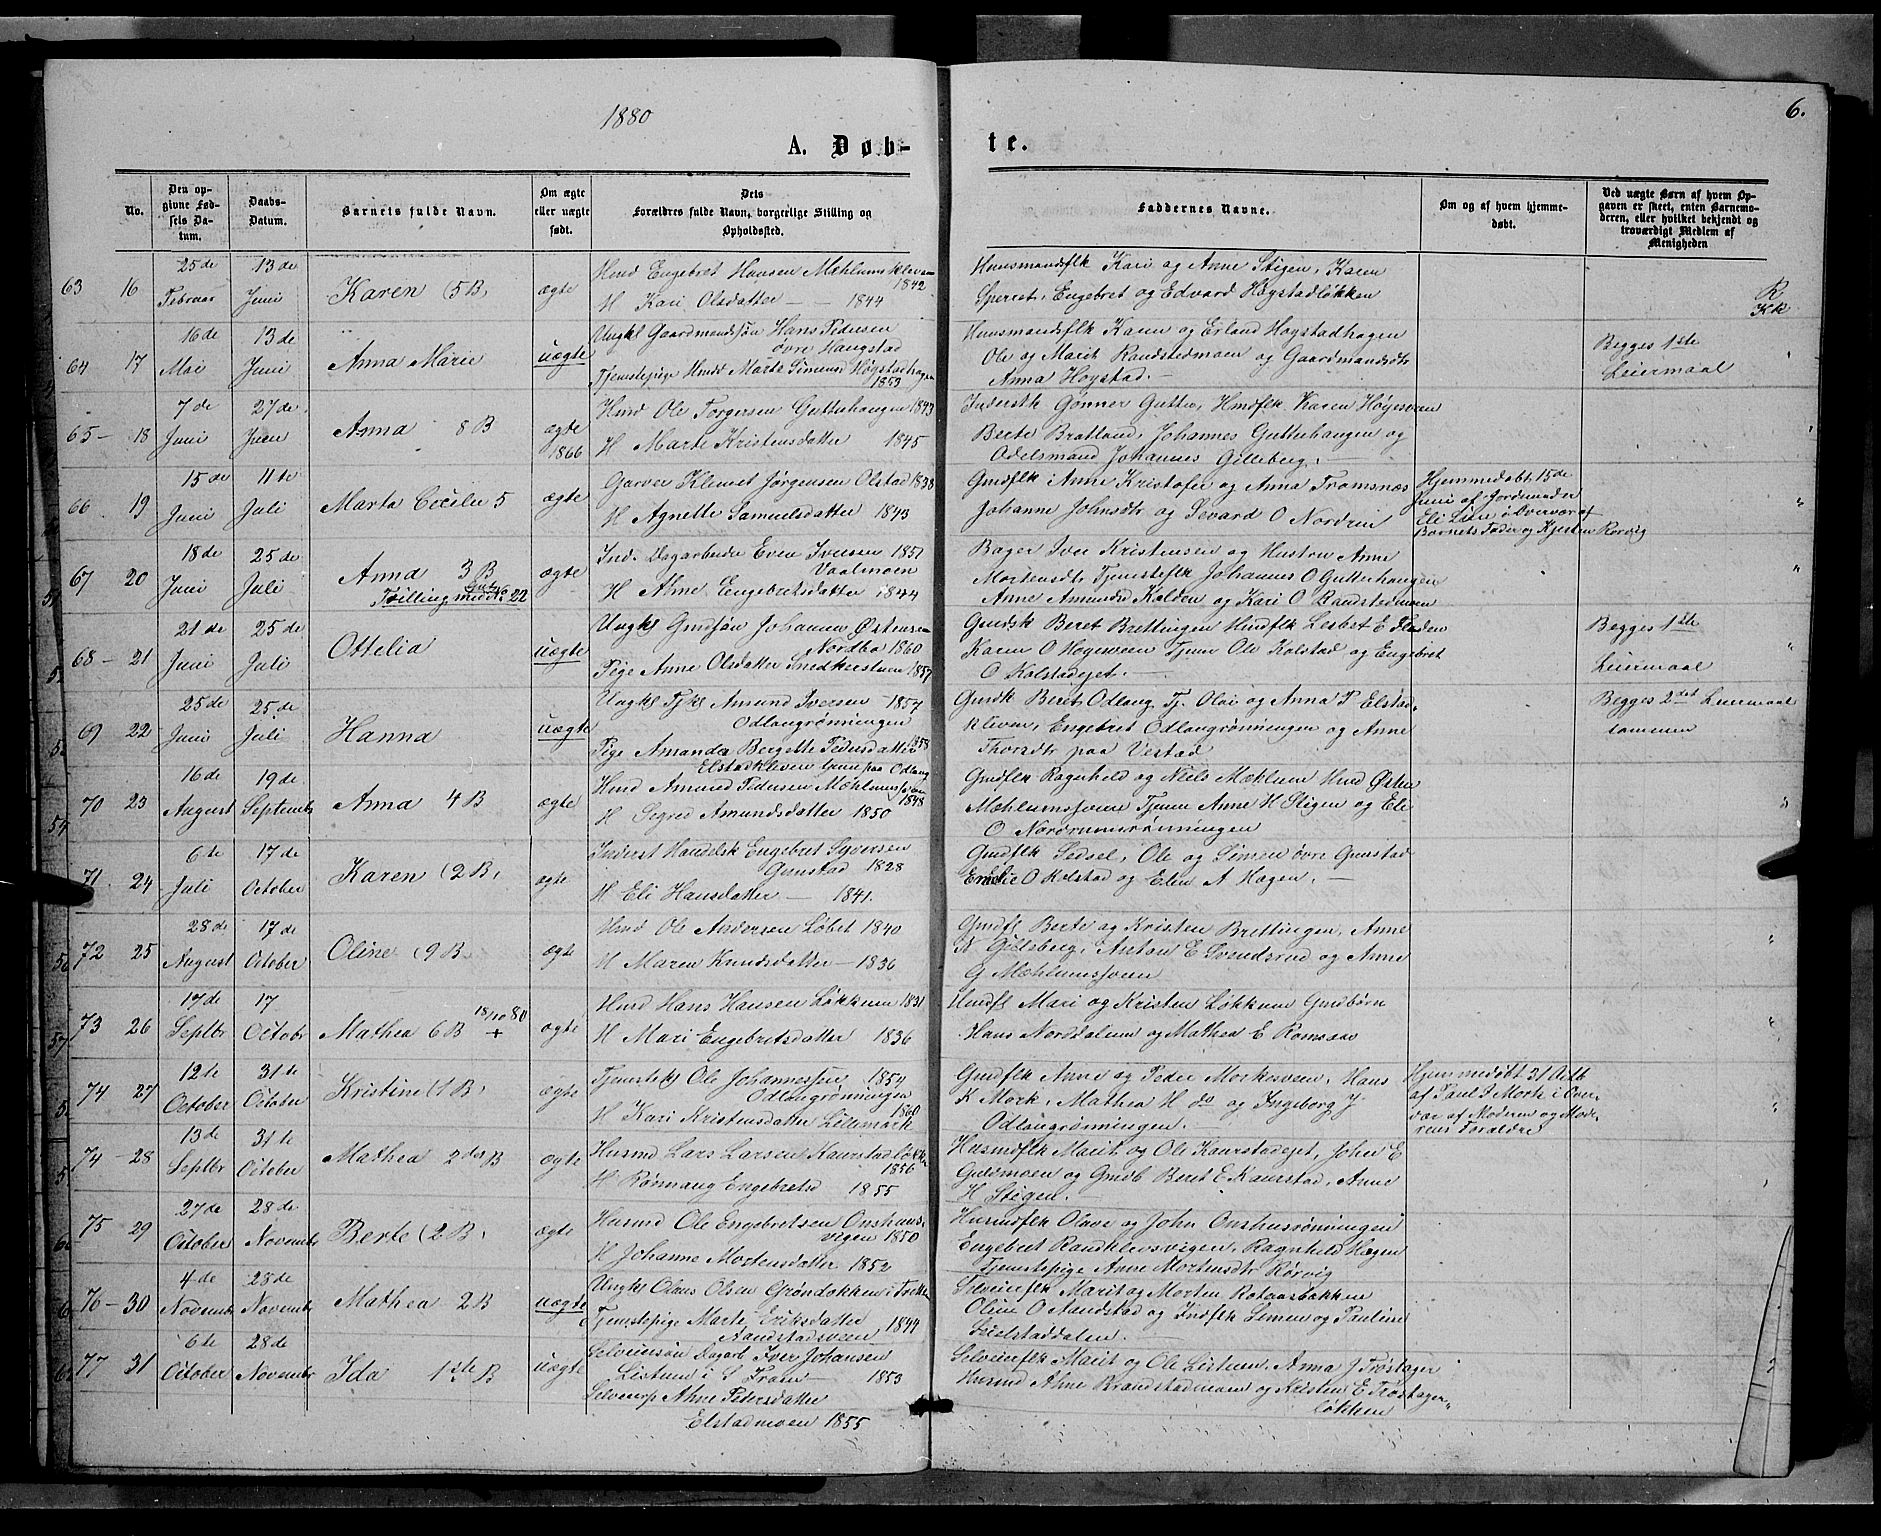 1880
6.
A. Døb-
te.
No.
Den op-
givne Fød-
sels Da-
tum.
Daabs-
Datum.
Barnets fulde Navn.
Om ægte
eller uægte
født.
Dets
Forældres fulde Navn, borgerlige Stilling og
Opholdssted.
Faddernes Navne.
Om og af hvem hjemme-
døbt.
Ved uægte Børn af hvem Op-
gaven er skeet, enten Barnemo-
deren, eller hvilket bekjendt og
troværdigt Medlem af
Menigheden
63 16 25de Februar 13de Juni Karen (5B) ægte
Hmd Engebret Hansen Mæhlumskleven 1842
H Kari Olsdatter — 1844
Huusmandsflk Kari og Anne Stigen, Karen
Sperret, Engebret og Edvard Høystadløkken
64 17 16de Mai 13de Juni Anna Marie uægte
Ungkl Gaardmandssøn Hans Pedersen
øvre Haugstad
Tjenstepige Marte Simensd Høystadhagen
1853
Huusmandsflk Karen og Erland Høystadhagen
Ole og Marit Randstedmoen og Gaardmandsdtr
Anna Høystad. —
Begges 1ste
Leiermaal
65 — 18 7de Juni 27de Juni Anna 8B ægte 1866
Hmd Ole Torgersen Gutterhaugen 1843
H Marte Kristensdatter 1845
Indersth Gønner Gutter, Hmdflk Karen Høgesveen
Berte Bratland, Johannes Gutterhaugen og
Odelsmand Johannes Gilleberg. —
66 19 15de Juni 11te Juli Marta Cecilie 5 ægte
Garver Klemet Jørgensen Olstad 1838
H Agnette Samuelsdatter 1843
Gmdflk Anne Kristofer og Anna Tromsnæs
Johanne Johnsdtr og Sevard O Nordrum
Hjemmedøbt 15de
Juni af Jordemoder
Eli Lien i Overvær af
Barnets Fader og Kjersten Rørvig
67 20 18de Juni 25de Juli Anna 3B ægte
Tvilling med No 22
Ind. Dagarbeider Even Iversen 1851
Vaalmoen
H Ahne Engebretsdatter 1844
Bager Iver Kristensen og Hustru Anne
Mortensdtr Tjensteflk Johannes O Gutterhaugen
Anne Amundsd Kolden og Kari O Randstedmoen
68 — 21 21de Juni 25de Juli Ottelia uægte
Ungkl Gmdsøn Johannes Østensen
Nordbø 1860
Pige Anne Olsdatter Snedkerstuen 1857
Gmdsk Beret Brettingen Hmdflk Lesbet E Fladen
Karen O Høgesveen Tjenr Ole Kolstad og Engebret
O Kolstadejet. —
Begges 1ste
Leiermaal
69 22 25de Juni 25de Juli Hanna uægte
Ungkl Tjkl Amund Iversen 1857
Odlaugrønningen
Pige Amanda Bergette Pedersdatter 1858
Elstadkleven tjene paa Odlaug
Gmdk Beret Odlaug, Tj. Olai og Anna P. Elstad-
kleven, Engebret Odlaugrønningen og Anne
Thorsdtr paa Vestad
Begges 2det Leiermaal
sammen
70 23 16de August 19de Septembr Anna 4B ægte
Hmd Amund Pedersen Mæhlumssveen
1848
H Segred Amundsdatter 1850
Gmdflk Ragnheld og Niels Mæhlum Hmd Østen
Mæhlumssveen Tjenr Anne H Stigen og Eli
O Nordrumsrønningen
71 24 6te Juli 17de October Karen (2B) ægte
Inderst Handelsk Engebret Syversen
Gunstad 1828
H Eli Hansdatter — 1841.
Gmdflk Sedsel, Ole og Simen øvre Gunstad
Emilie O Kolstad og Elen A Hagen. —
72 25 28de August 17de October Oline (9B) ægte
Hmd Ole Andersen Løbet 1840
H Maren Knudsdatter — 1836
Gmdfl Berte og Kristen Brettingen, Anne
N Gilleberg, Anton E Svendsrud og Anne
G Mæhlumssveen
73 26 17de Septbr 17 October Mathea 6B 18/10 80 + ægte
Hmd Hans Hansen Løkkum 1831
H Mari Engebretsdatter 1836
Hmdfl Mari og Kristen Løkkum Gmdbørn
Hans Norddalum og Mathea E Romsaas
74 27 12te October 31te October Kristine (1B) ægte
Tjenstekl Ole Johannessen 1854
Odlaugrønningen
H Kari Kristensdatter Lillemork 1860
Gmdflk Anne og Peder Morksveen, Hans
K Mork, Mathea H do og Ingeborg J
Odlaugrønningen. —
Hjemmedøbt 31 Octb
af Paul J Mork i Over-
vær af Moderen og Mode-
rens Forældre
74 — 28 13de Septbr 31te October Mathea 2den B ægte
Husmd Lars Larsen Kaurstadløkken
1856
H Rønnaug Engebretsd 1855
Husmdflk Marit og Ole Kaurstadejet, John E
Guldmoen og Gmdb Beret E Kaurstad, Anne
H Stigen. —
75 — 29 27de October 28de Novembr Berte (2B) ægte
Husmd Ole Engebretsen Onshuus-
vigen 1850
H Johanne Mortensdatter 1852
Husmdflk Olave og John Onshusrønningen
Engebret Randklevsvigen, Ragnheld Hagen
Tjenstepige Anne Mortensdtr Rørvig
76 — 30 4de Novembr 28de Novembr Mathea 2B uægte
Ungkl Olaus Olsen Grøndokken i Tretten
Tjenstepige Marte Eriksdatter 1844
Aandstadsveen
Selveierflk Marit og Morten Rotaasbakken
Oline O Aandstad og Indflk Simen og Pauline
Seielstaddalen. —
77 31 6te October 28de Novembr Ida 1ste B uægte
Selveiersøn Dagarb Iver Johansen
Listuen i S Fron — 1853
Selveierp Ahne Petersdatter
Elstadmoen 1855
Selveierflk Marit og Ole Listuen, Anna J Trøstager
Husmd Ahne Brandstadmoen og Kristen E Trøstager-
løkken